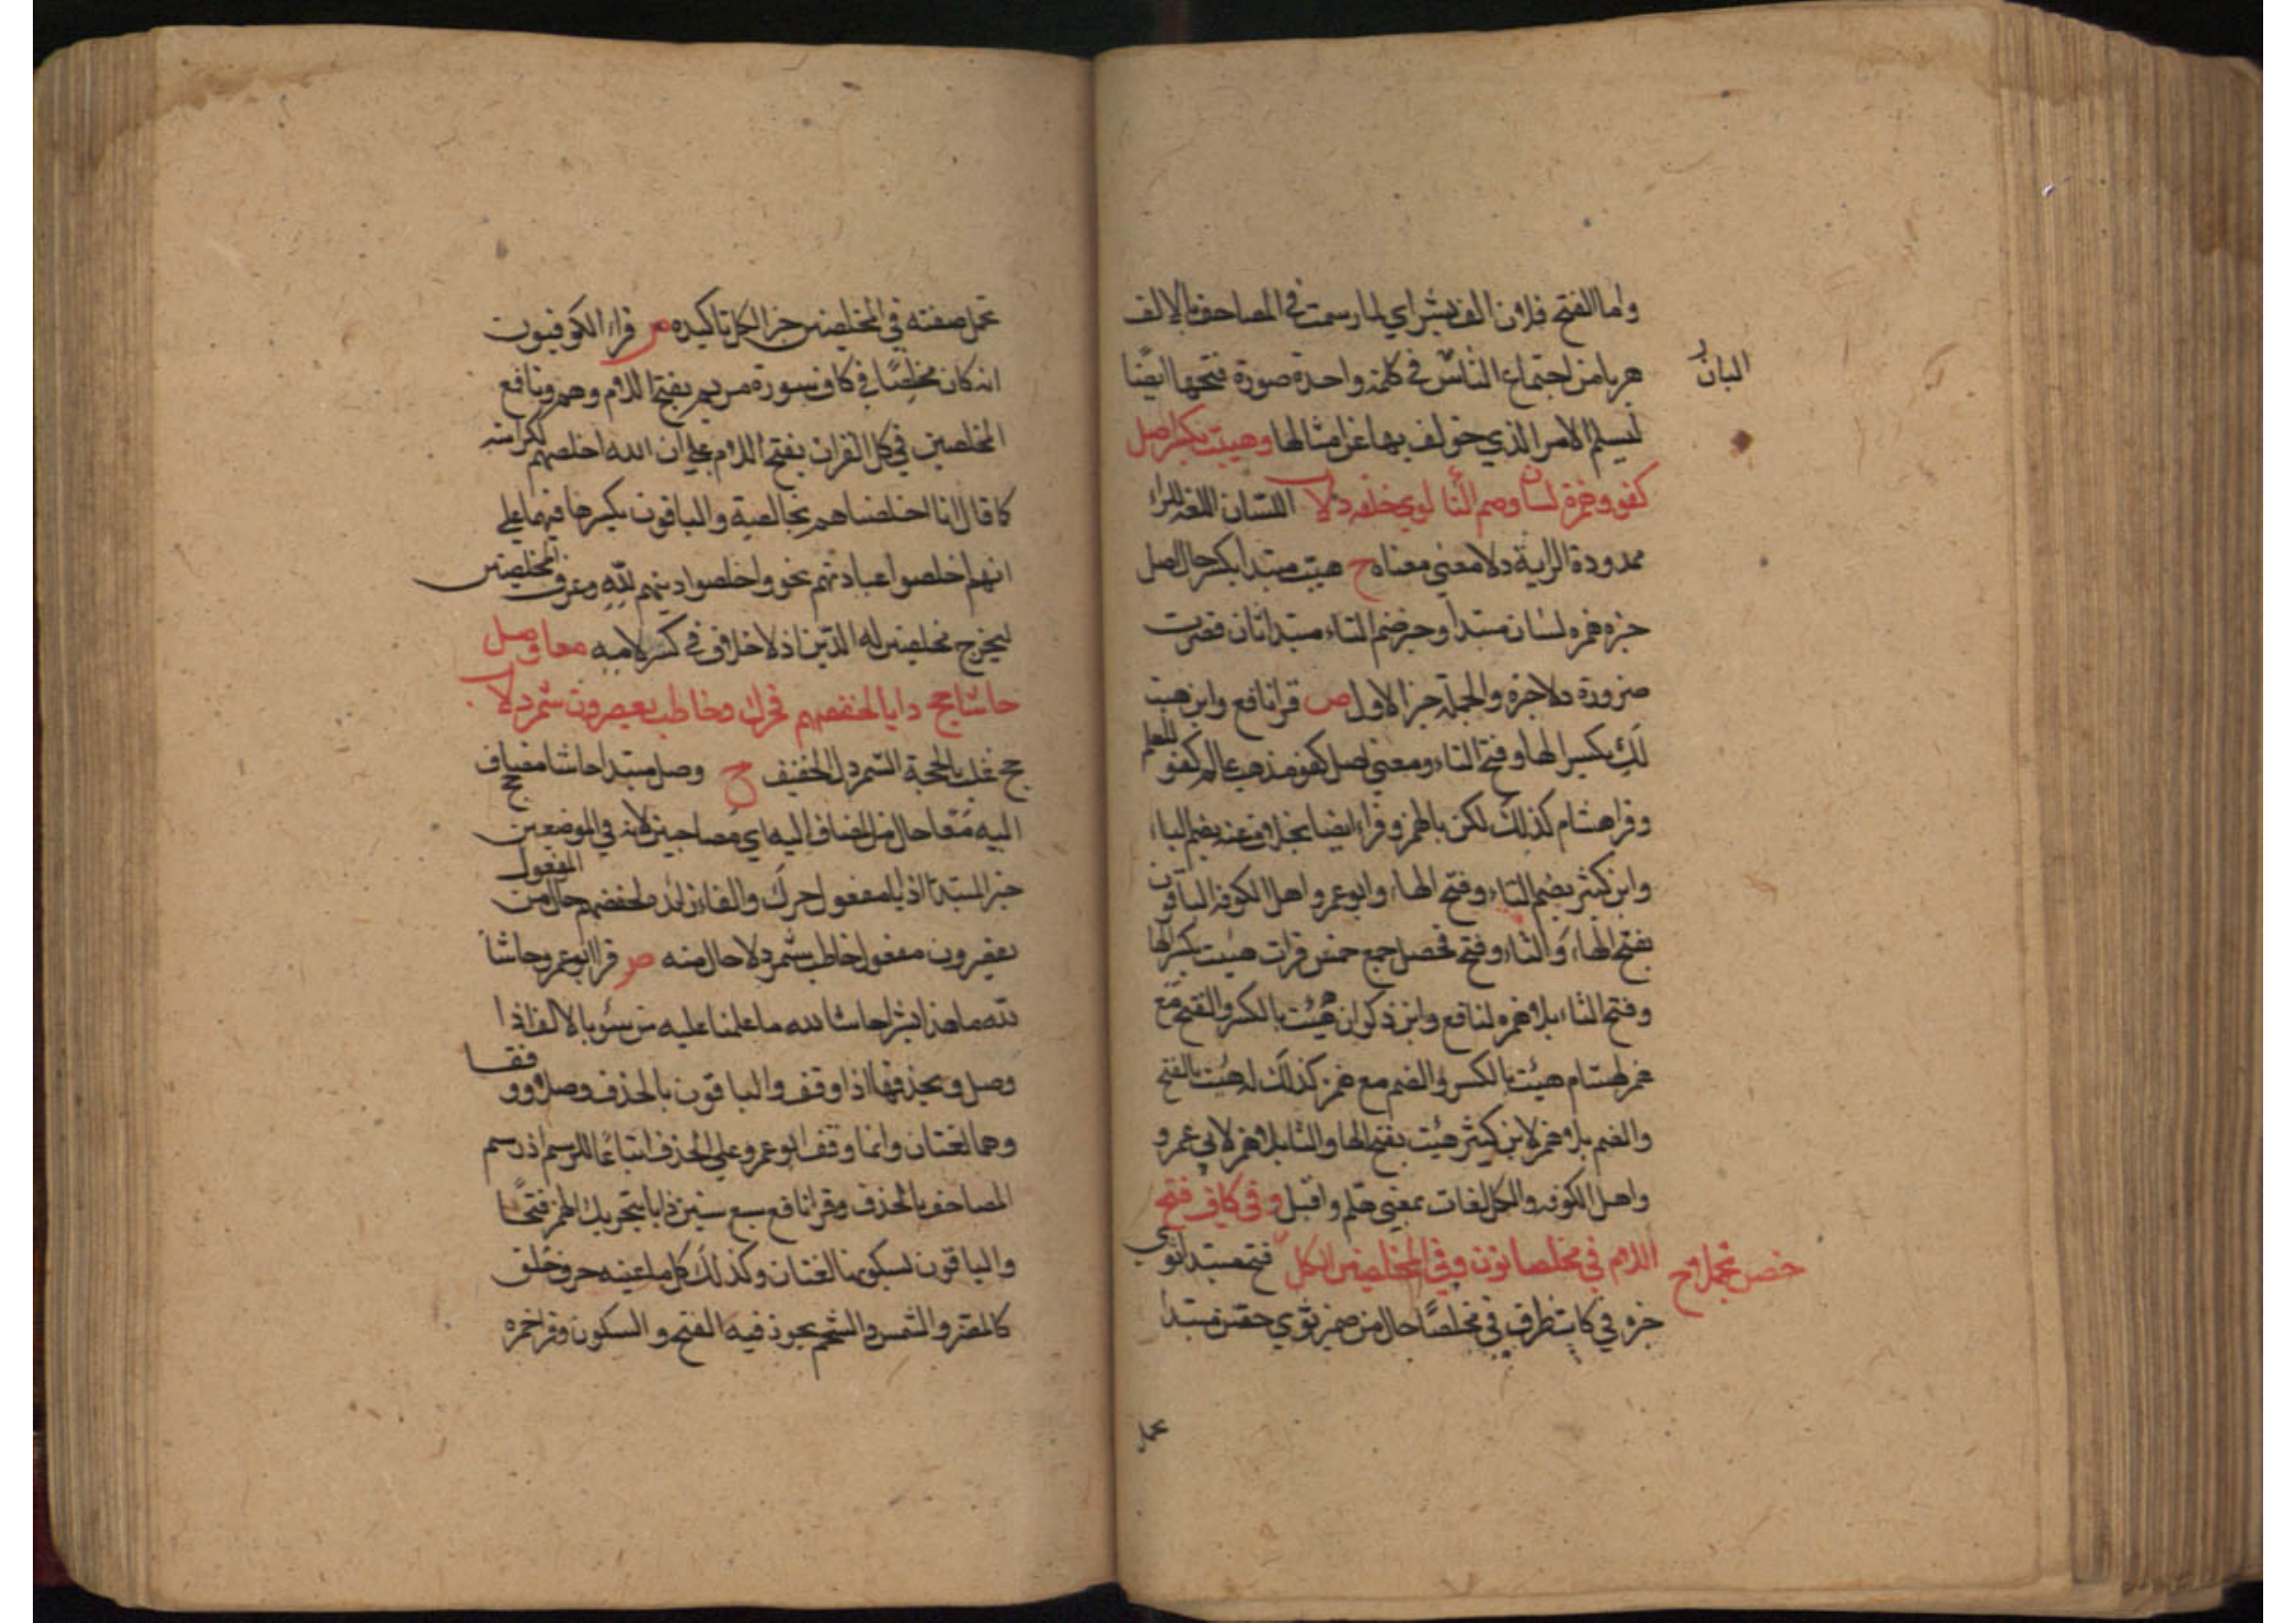 واما الفتح فلان الف بشراي لما رسمت في المصاحف بالالف
هربا من اجتماع الثاس في كلمة واحدة صورة فتحها ايضا
البان
ليسلم الامر الذي خولف بها عن امثالها وهيت بكسر اصل
كفو وهمزة لسان وضم التا لوي خلفه دلا اللسان اللغة اللرا
ممدودة الراية دلا معني معناه ح هيت مبتدا بكسر حال اصل
خبره همزه لسان مبتدا وخبر ضم التاء مبتدا ثان قصرت
ضرورة دلا خبره والجملة خبر الاول ص قرا نافع وابن هيت
لك بكسر الها وفتح التاء ومعني اصل كفو مذهب عالم كفو للعلم
وقرا هشام كذلك لكن بالهمز وقراء ايضا بخلاف عنه بضم الياء
وابن كثير بضم التاء وفتح الهاء وابو عمرو واهل الكوفة الباقون
بفتح الهاء والتاء وفتح فحصل جمع خمس قرات هيت بكسر الها
وفتح التاء بلا همزه لنافع وابن ذكوان هئت بالكسر والفتح مع
همز لهشام هيئت بالكسر والضم مع همز كذلك له هيت بالفتح
والضم بلا همز لابن كثير هيت بفتح الها والتا بلا همز لابي عمرو
واهل الكوفه والكل لغات بمعني هلم واقبل وفي كاف فتح
اللام في مخلصا ثوي وفي المخلصين الكل فتح مبتدا ثوي
حصن تجملا ح
خبره في كاف ظرف في مخلصا حال من ضمير ثوي حصن مبتدا
تجمل
تجمل صفته في المخلصين خبر الكل تاكيده ص قراء الكوفيون
انه كان مخلصا في كاف سورة مريم بفتح اللام وهم ونافع
المخلصين في كل القران بفتح اللام علي ان الله اخلصهم لكرامته
كما قال انا اخلصناهم بخالصة والباقون بكسرها فيهما علي
انهم اخلصوا عبادتهم نحو واخلصوا دينهم لله وعرف المخلصين
ليخرج مخلصين له الدين اذ لا خلاف في كسر لامه معا وصل
حاشا حج دابا لحفصهم فحرك وخاطب يعصرون شمردلا
حج غلب بالحجة الشمردل الخفيف ح وصل مبتدا حاشا مضاف حج
اليه معا حال من المضاف اليه اي مصاحبين لانه في الموضعين
خبر المبتدا دابا مفعول حرك والفاء زائد لحفصهم حال من المفعول
تعصرون مفعول خاطب شمردلا حال منه ص قرا ابو عمرو حاشا
لله ما هذا بشرا حاشا لله ما علمنا عليه من سوء بالالف اذا
وصل ويحذفها اذا وقف والباقون بالحذف وصلا ووقفا
وهما لغتان وانما وقف ابو عمرو علي الحذف اتباعا للرسم اذ رسم
المصاحف بالحذف وقرا نافع سبع سنين دابا بتحريك الهمز فتحا
والباقون بسكونها لغتان وكذلك كل ما عينه حرف حلق
كالمعز والشمس والشحم يجوز فيه الفتح والسكون وقرا حمزه